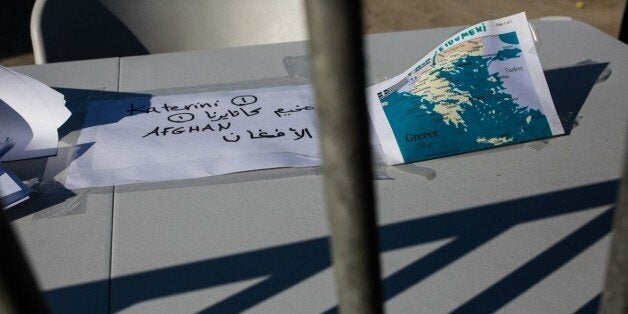 Katerini ①
مخيم كاتارينا ①
AFGHAN
الأفغان
EIDOMENI
Page 1 of 1
Turkey
Greece